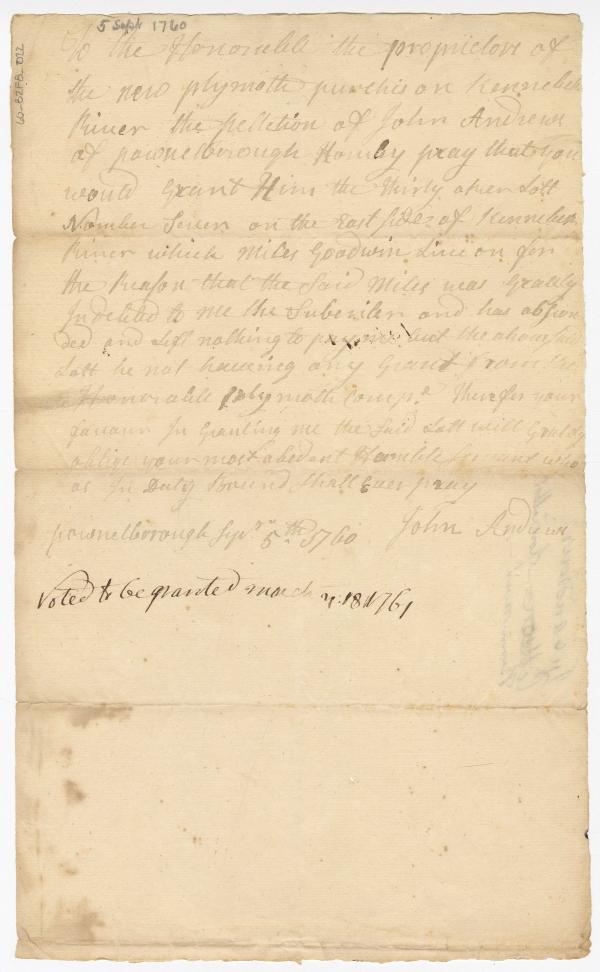 5 Sept 1760
To the Honorable the propriators of
the new plymoth purchis on Kennebek
River the petetion of John Andrews
of pownelborough Hombly pray that you
would Grant Him the thirty aker Lott
Nomber Seven on the East side of Kennebek
River which Miles Goodwin Live on for
the Reason that the said Miles was Gratly
Indebted to me the Subcriber and has abscon
ded and Left nothing to pay me but the above said
Lott he not haveing any Grant From the
Honorable plymoth Compa Therefor your
favour In Granting me the Said Lott will Gratly
oblige your most obedent Humble Servant who
as In Duty Bound Shall Ever pray
pownelborough Sepr 5th 1760 John Andrews
Voted to be granted march 18 1761